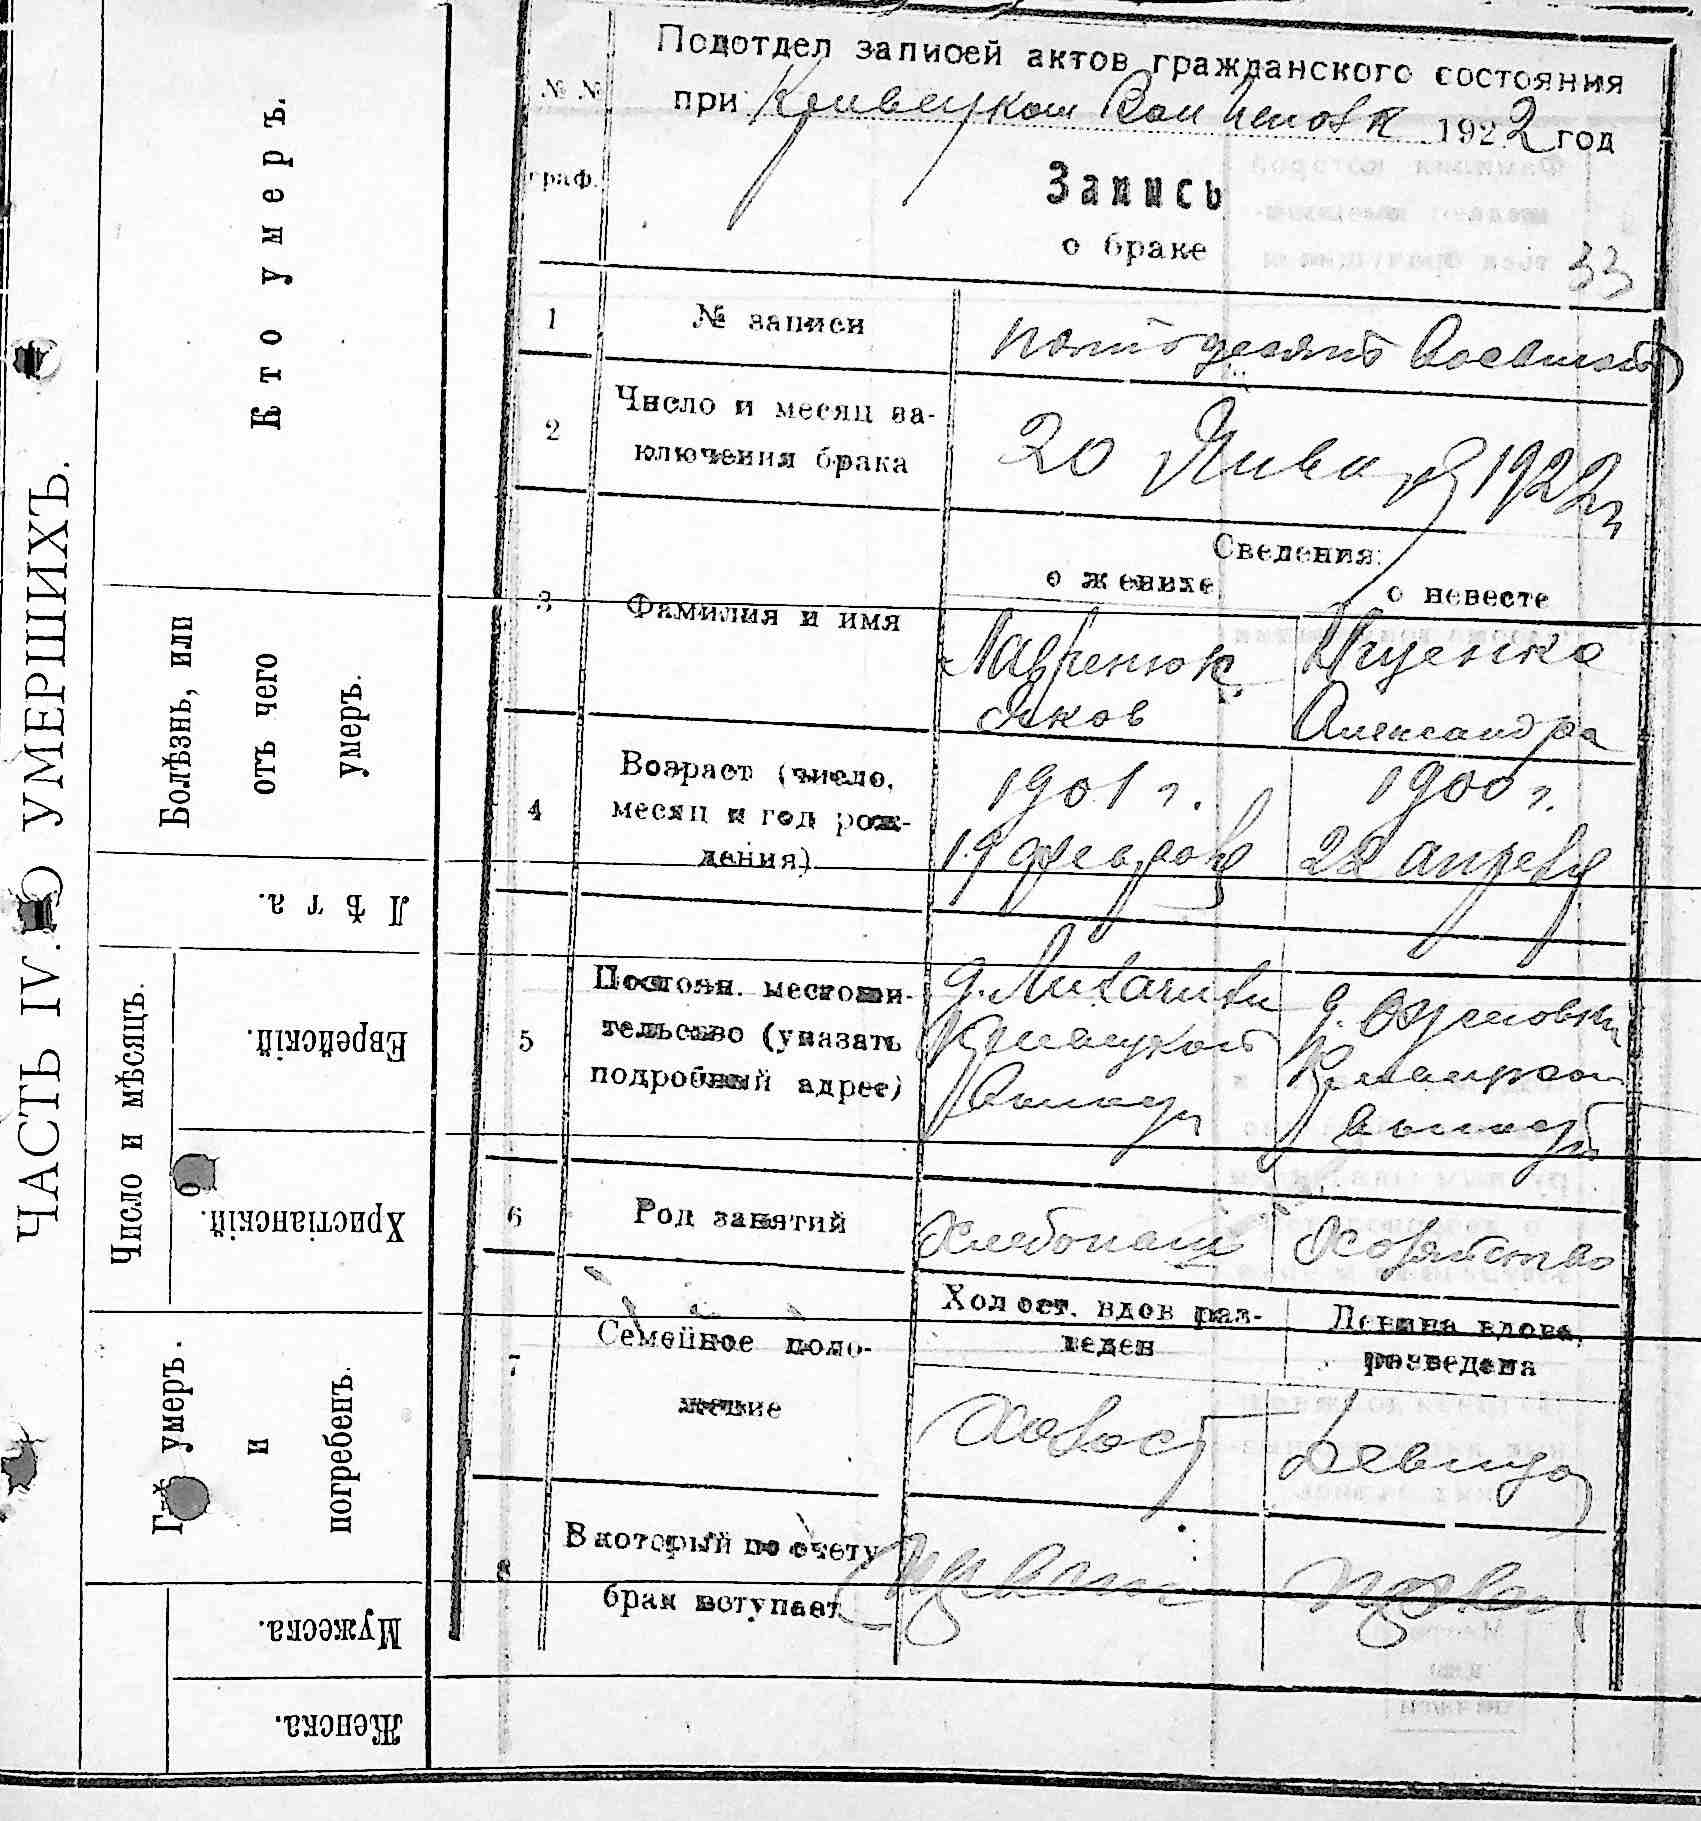 ЧАСТЬ IV. О УМЕРШИХЪ.
Кто умеръ.
Болѣзнь, или
отъ чего
умеръ.
Лѣта.
Число и мѣсяцъ.
Еврейскій.
Христіанскій.
Г умеръ.
и
погребенъ.
Мужеска.
Женска.
№ №
граф.
Подотдел записей актов гражданского состояния
при Кривецком Вол Исполк 1922 год
Запись
о браке
33
1
№ записи
2
Число и месяц за-
ключения брака
20 Января 1922 г
3
Фамилия и имя
Сведения:
о женихе
о невесте
Лавренюк
Яков
Ищенко
Александра
4
Возраст (число,
месяц и год рож-
дения)
1901 г.
19 февраля
1900 г.
22 апреля
5
Постоян. местожи-
тельство (указать
подробный адрес)
д.
волости
д.
волости
6
Род занятий
Хлебопаш
Хозяйство
7
Семейное поло-
жение
Холост. вдов раз-
веден
Девица вдова,
разведена
Холост
Девица
8
В который по счету
брак вступает
Первый
Первый